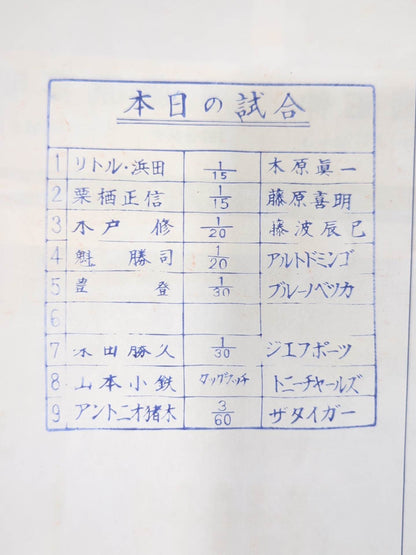 本日の試合
1 リトル・浜田 1/15 木原真一
2 栗栖正信 1/15 藤原喜明
3 木戸 修 1/20 藤波辰巳
4 魁 勝司 1/20 アルトドミンゴ
5 豊 登 1/30 ブルーノベツカ
6
7 永田勝久 1/30 ジエフポーツ
8 山本小鉄 タッグマッチ トニーチャールズ
9 アントニオ猪木 3/60 ザタイガー